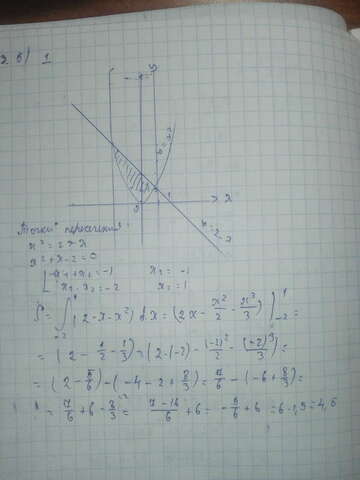 2 б) 1
y
x
0
1
y = x²
y = 2 - x
Точки пересечения:
x² = 2 - x
x² + x - 2 = 0
x₁ + x₂ = -1
x₁ · x₂ = -2
x₁ = -1
x₂ = 1
S = ∫₋₂¹ (2 - x - x²) dx = (2x - x²/2 - x³/3) |₋₂¹ =
= (2 - 1/2 - 1/3) - (2·(-2) - (-2)²/2 - (-2)³/3) =
= (2 - 5/6) - (-4 - 2 + 8/3) = 7/6 - (-6 + 8/3) =
= 7/6 + 6 - 8/3 = 7 - 16/6 + 6 = -9/6 + 6 = 6 - 1,5 = 4,5